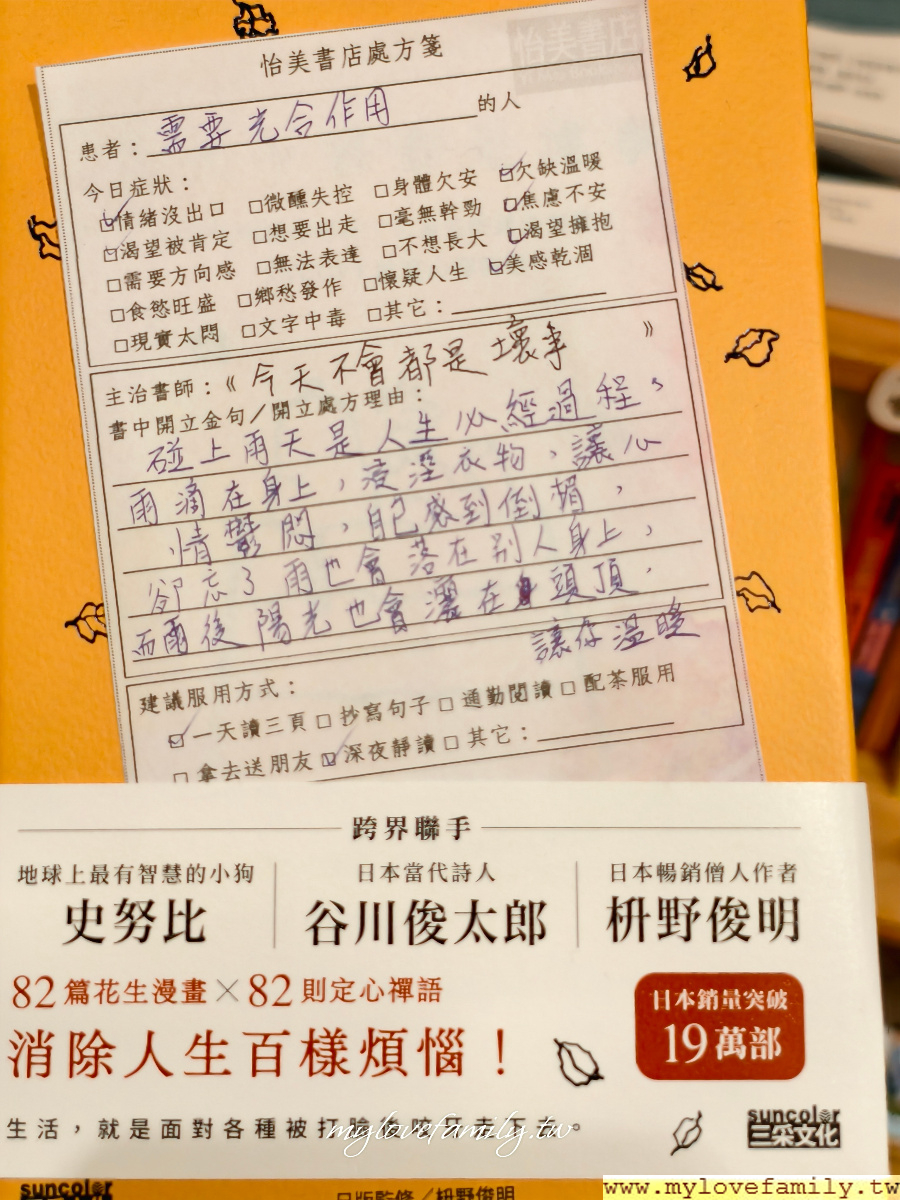 怡美書店
怡美書店處方箋
患者：需要光合作用的人
今日症狀：
☑情緒沒出口 □微醺失控 □身體欠安 ☑欠缺溫暖
☑渴望被肯定 □想要出走 □毫無幹勁 ☑焦慮不安
□需要方向感 □無法表達 □不想長大 ☑渴望擁抱
□食慾旺盛 □鄉愁發作 □懷疑人生 ☑美感乾涸
□現實太悶 □文字中毒 □其它：
主治書師：《今天不會都是壞事》
書中開立金句／開立處方理由：
碰上雨天是人生必經過程。
雨滴在身上，浸溼衣物，讓心
情鬱悶，自己感到倒楣，
卻忘了雨也會落在别人身上，
而雨後陽光也會灑在頭頂，
讓你溫暖
建議服用方式：
☑一天讀三頁 □抄寫句子 □通勤閱讀 □配茶服用
□拿去送朋友 ☑深夜靜讀 □其它：
跨界聯手
地球上最有智慧的小狗 日本當代詩人 日本暢銷僧人作者
史努比 谷川俊太郎 枡野俊明
82篇花生漫畫×82則定心禪語
日本銷量突破
19萬部
消除人生百樣煩惱！
生活，就是面對各種被打臉
mylovefamily.tw
suncolor
三采文化
suncolor
日版監修／枡野俊明
www.mylovefamily.tw